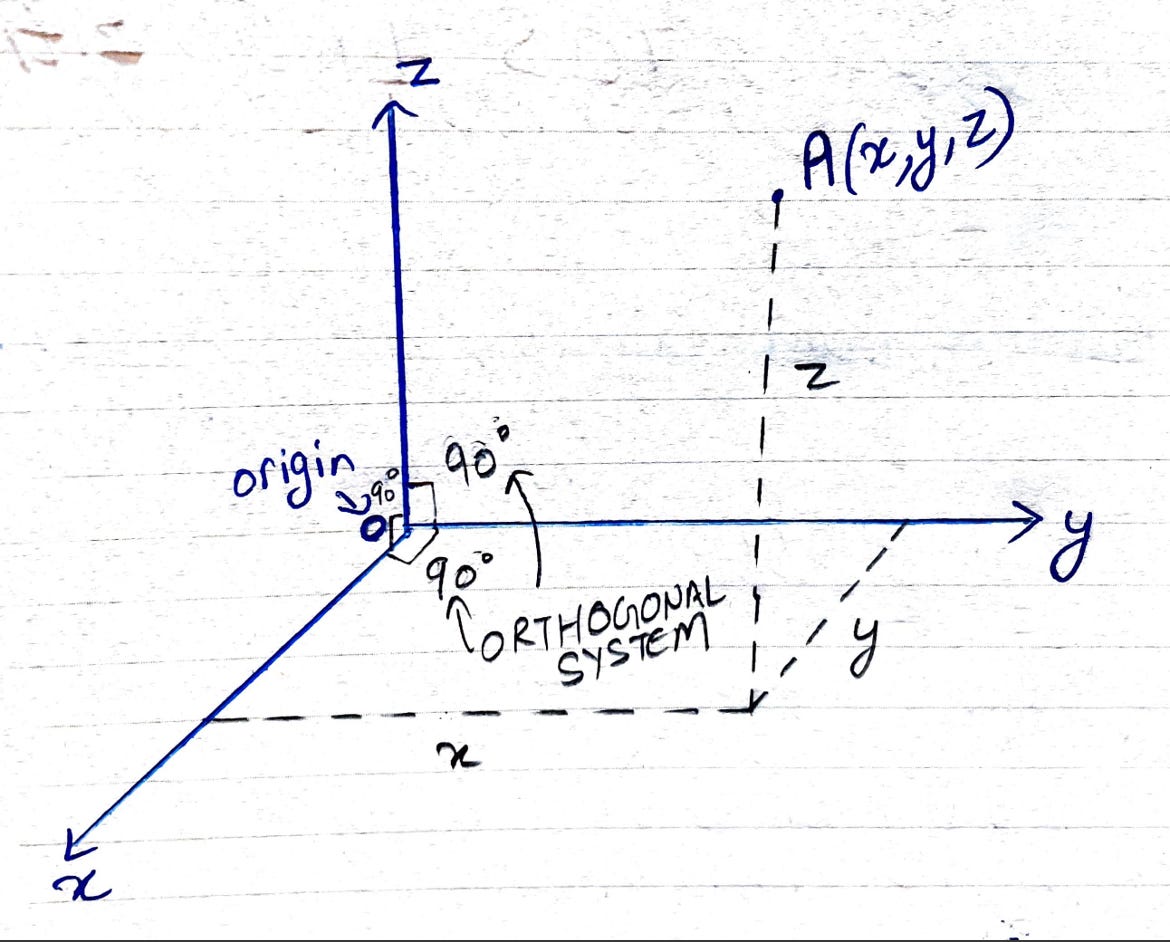 z
A(x,y,z)
z
origin
90°
90°
O
y
90°
ORTHOGONAL
SYSTEM
y
x
x